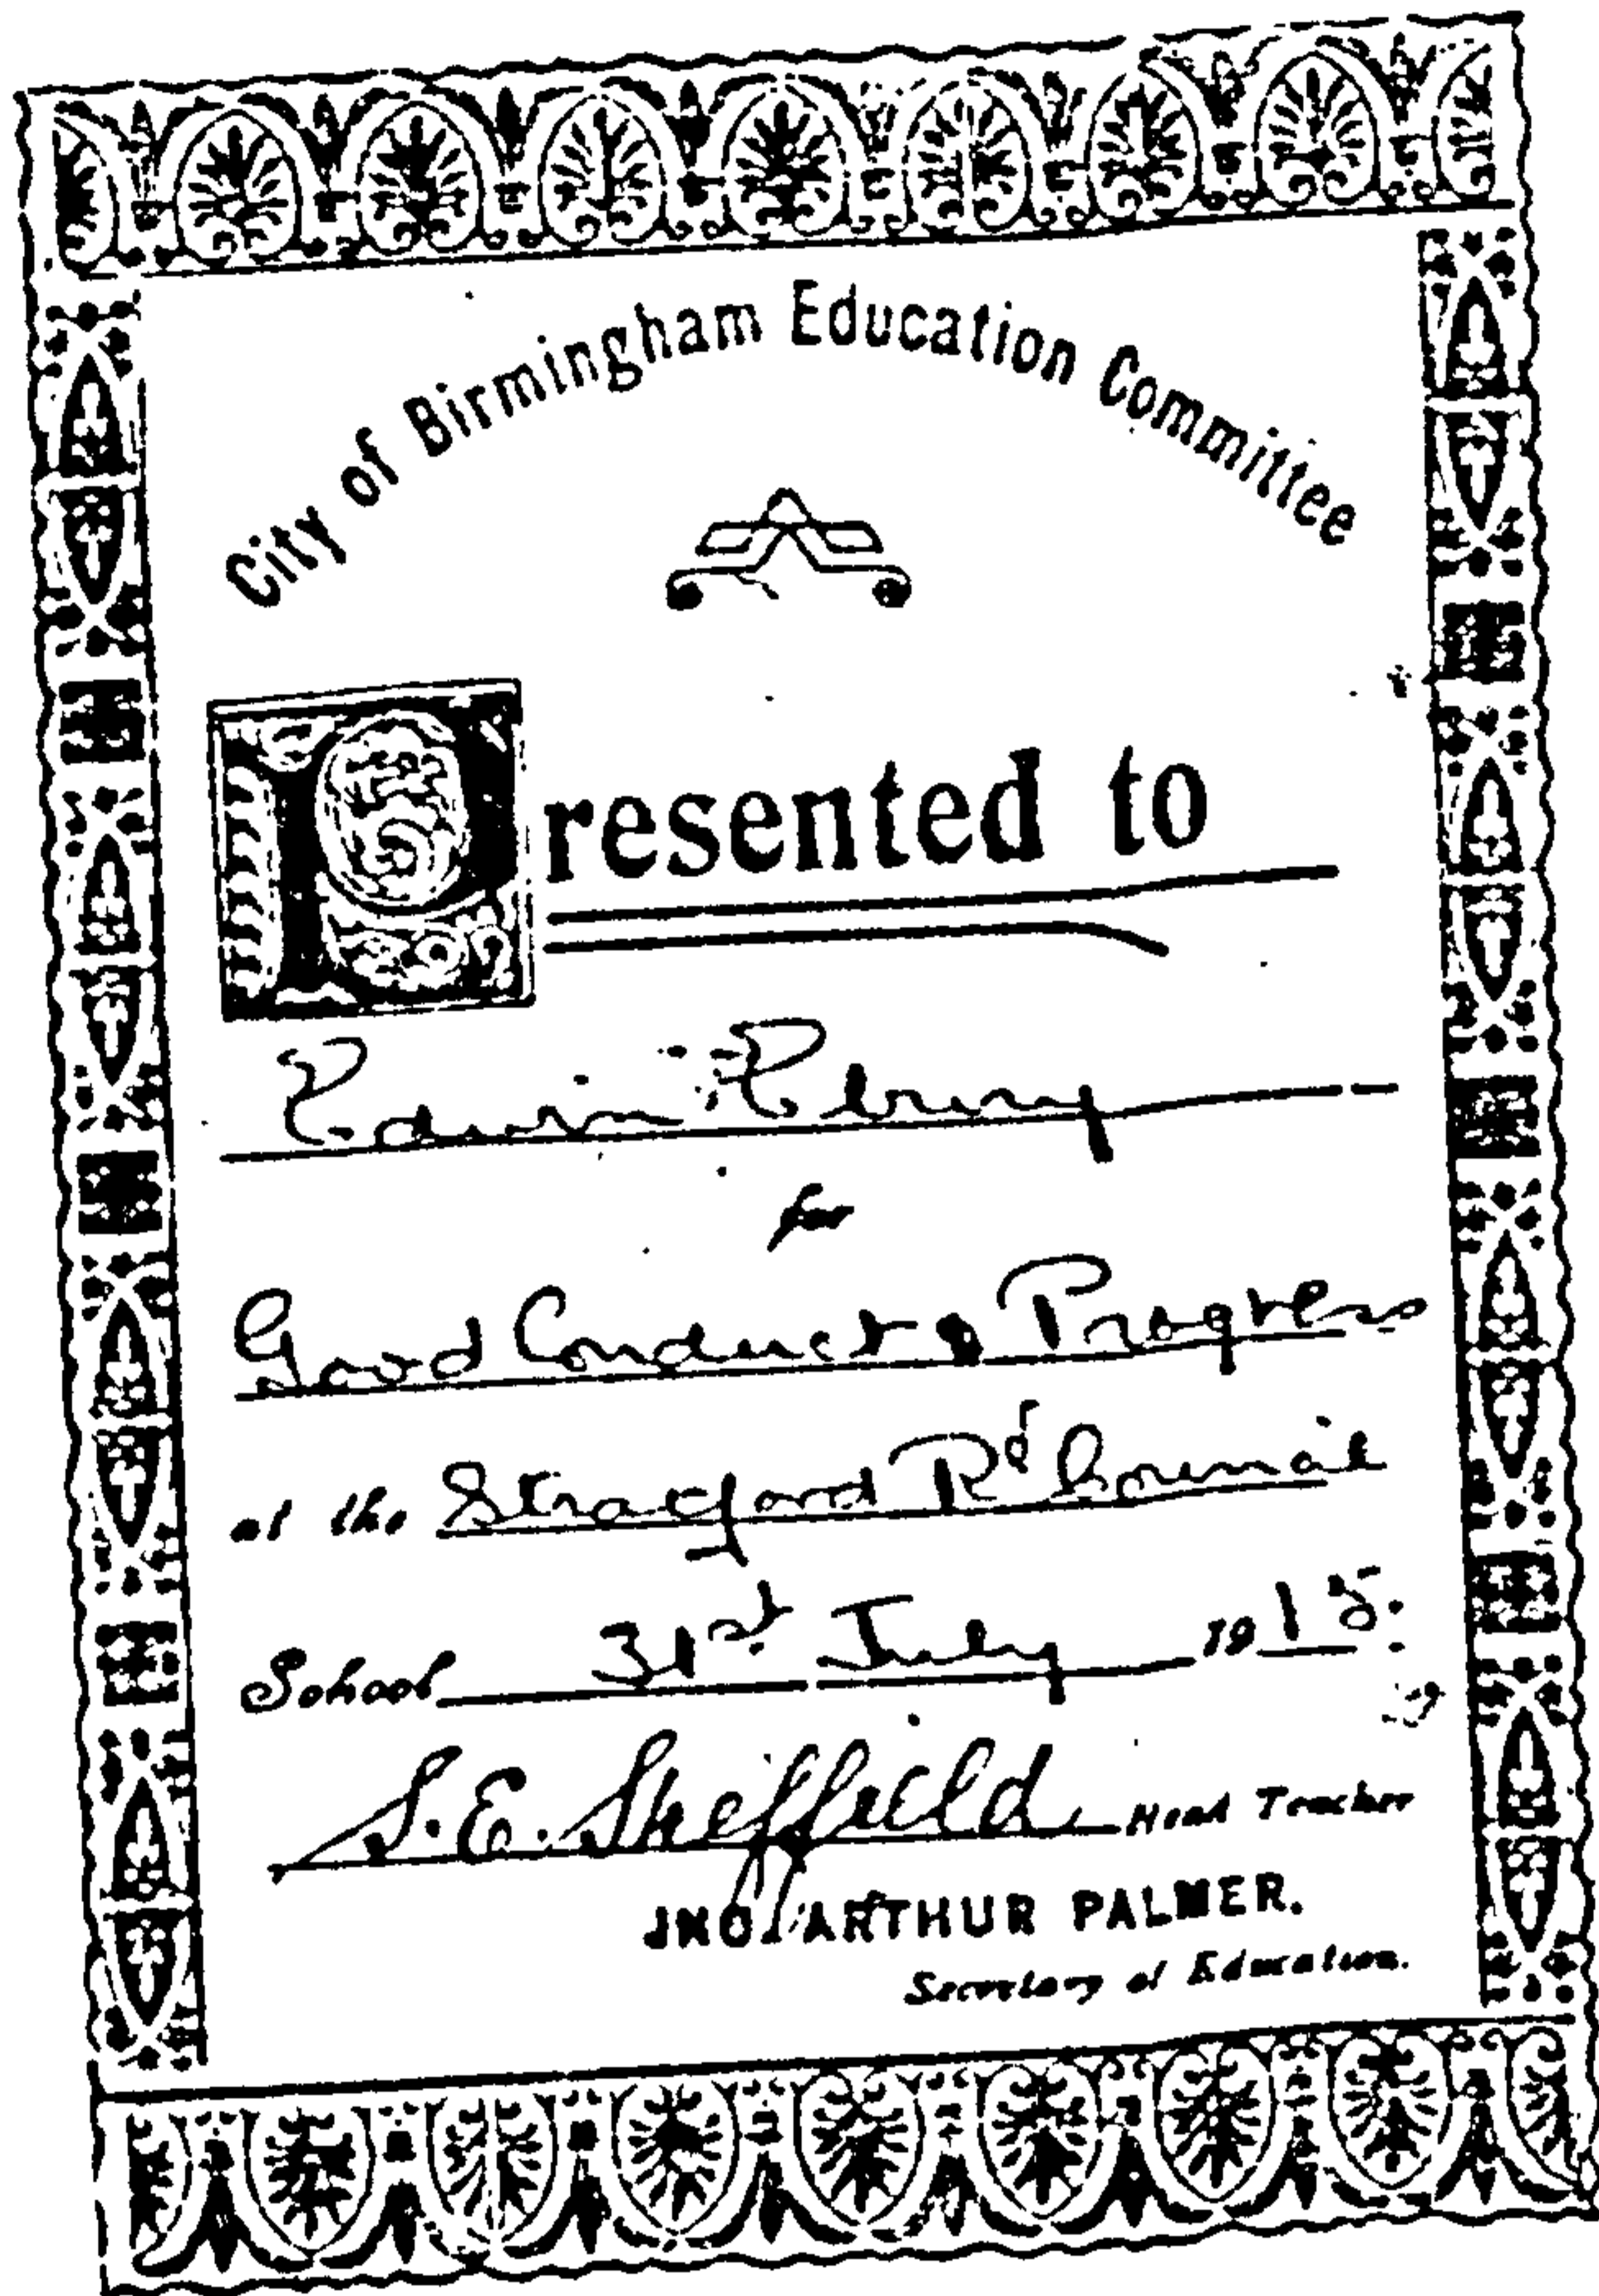 City of Birmingham Education Committee
Presented to
Edwin
for
Good Conduct & Progress
at the Stratford Rd Council
School 31st July 1915.
S. E. Sheffield Head Teacher
JNO. ARTHUR PALMER.
Secretary of Education.